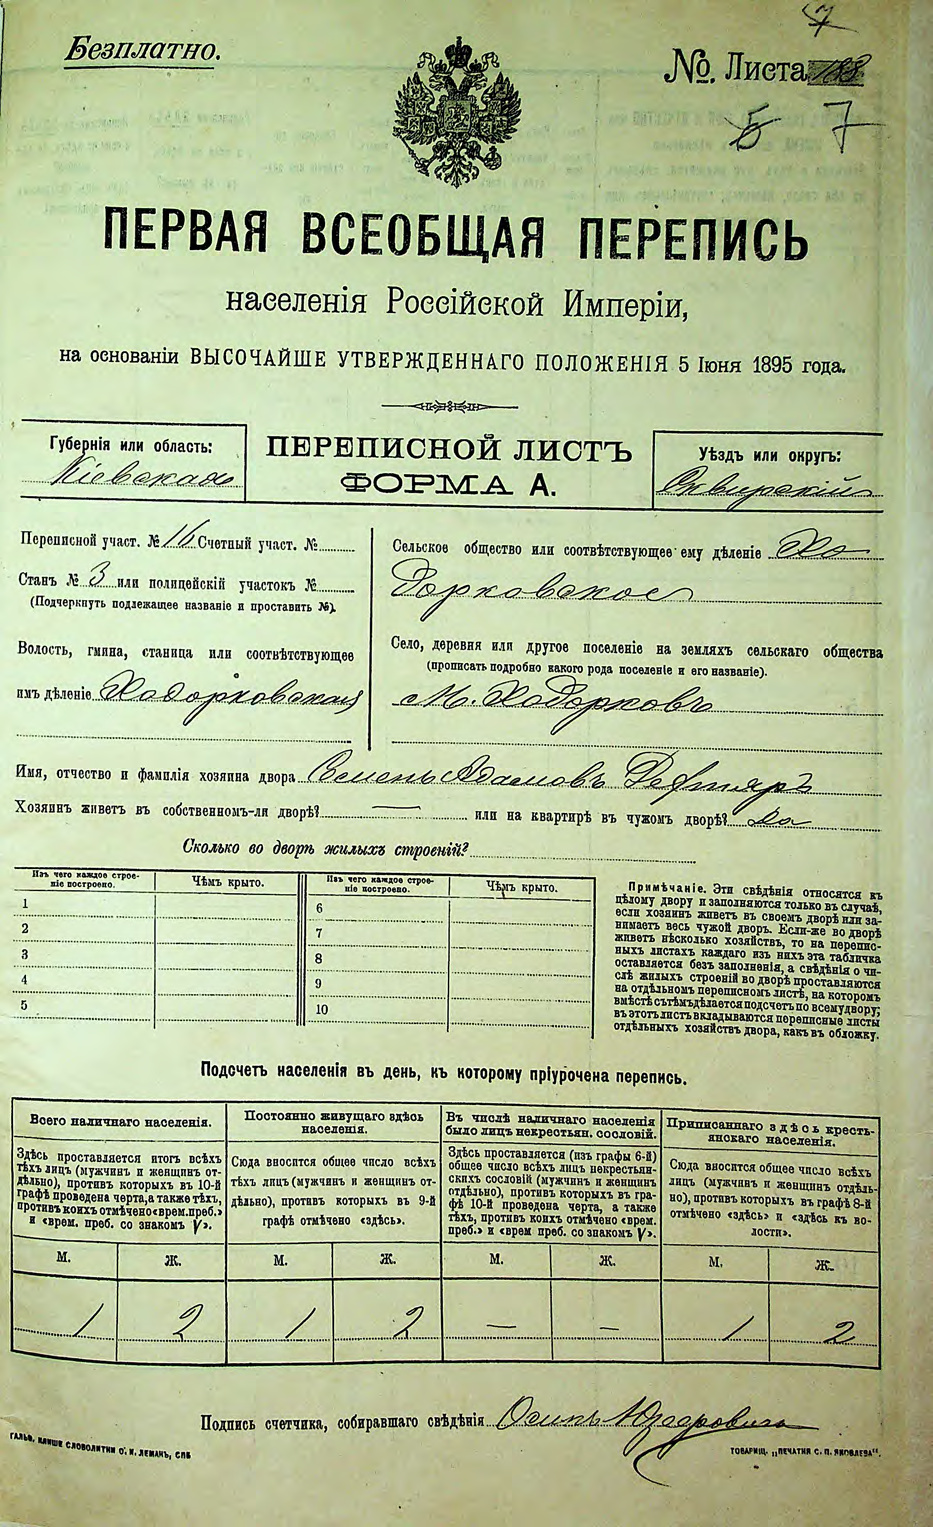 7
Безплатно.
№. Листа 188
5 7
ПЕРВАЯ ВСЕОБЩАЯ ПЕРЕПИСЬ
населенія Россійской Имперіи,
на основаніи ВЫСОЧАЙШЕ УТВЕРЖДЕННАГО ПОЛОЖЕНІЯ 5 Іюня 1895 года.
Губернія или область:
Кіевская
ПЕРЕПИСНОЙ ЛИСТЪ
ФОРМА А.
Уѣздъ или округъ:
Сквирскій
Переписной участ. № 16 Счетный участ. №
Станъ № 3 или полицейскій участокъ №
(Подчеркнуть подлежащее названіе и проставить №).
Волость, гмина, станица или соотвѣтствующее
имъ дѣленіе Ходорковская
Сельское общество или соотвѣтствующее ему дѣленіе Хо
дорковское
Село, деревня или другое поселеніе на земляхъ сельскаго общества
(прописать подробно какого рода поселеніе и его названіе).
М. Ходорковъ
Имя, отчество и фамилія хозяина двора Семенъ Адамовъ Дефтяръ
Хозяинъ живетъ въ собственномъ-ли дворѣ? — или на квартирѣ въ чужомъ дворѣ? да
Сколько во дворѣ жилыхъ строеній?
Изъ чего каждое строе-
ніе построено.
Чѣмъ крыто.
1
2
3
4
5
Изъ чего каждое строе-
ніе построено.
Чѣмъ крыто.
6
7
8
9
10
Примѣчаніе. Эти свѣдѣнія относятся къ
цѣлому двору и заполняются только въ случаѣ,
если хозяинъ живетъ въ своемъ дворѣ или за-
нимаетъ весь чужой дворъ. Если-же во дворѣ
живетъ нѣсколько хозяйствъ, то на перепис-
ныхъ листахъ каждаго изъ нихъ эта табличка
оставляется безъ заполненія, а свѣдѣнія о чи-
слѣ жилыхъ строеній во дворѣ проставляются
на отдѣльномъ переписномъ листѣ, на которомъ
вмѣстѣ съ тѣмъ дѣлается подсчетъ по всему двору;
въ этотъ листъ вкладываются переписные листы
отдѣльныхъ хозяйствъ двора, какъ въ обложку.
Подсчетъ населенія въ день, къ которому пріурочена перепись.
Всего наличнаго населенія.
Здѣсь проставляется итогъ всѣхъ
тѣхъ лицъ (мужчинъ и женщинъ от-
дѣльно), противъ которыхъ въ 10-й
графѣ проведена черта, а также тѣхъ,
противъ коихъ отмѣчено «врем. преб.»
и «врем. преб. со знакомъ V».
М. Ж.
1 2
Постоянно живущаго здѣсь
населенія.
Сюда вносится общее число всѣхъ
тѣхъ лицъ (мужчинъ и женщинъ от-
дѣльно), противъ которыхъ въ 9-й
графѣ отмѣчено «здѣсь».
М. Ж.
1 2
Въ числѣ наличнаго населенія
было лицъ некрестьян. сословій.
Здѣсь проставляется (изъ графы 6-й)
общее число всѣхъ лицъ некрестьян-
скихъ сословій (мужчинъ и женщинъ
отдѣльно), противъ которыхъ въ гра-
фѣ 10-й проведена черта, а также
тѣхъ, противъ коихъ отмѣчено «врем.
преб.» и «врем. преб. со знакомъ V».
М. Ж.
— —
Приписаннаго здѣсь кресть-
янскаго населенія.
Сюда вносится общее число всѣхъ
лицъ (мужчинъ и женщинъ отдѣль-
но), противъ которыхъ въ графѣ 8-й
отмѣчено «здѣсь» и «здѣсь къ во-
лости».
М. Ж.
1 2
Подпись счетчика, собиравшаго свѣдѣнія Осипъ
ГАЛЬВ. КЛИШЕ СЛОВОЛИТНИ О. И. ЛЕМАНЪ, СПБ
ТОВАРИЩ. „ПЕЧАТНЯ С. П. ЯКОВЛЕВА".